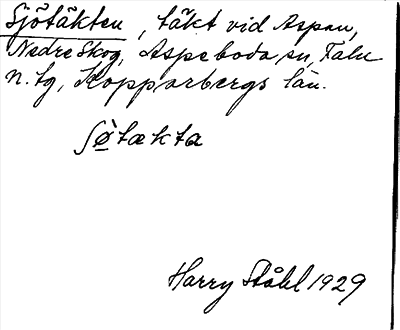 Sjötäkten, täkt vid Aspan,
Nedre Skog, Aspeboda sn, Falu
N. tg, Kopparbergs län.
ʃø̀tækta
Harry Ståhl 1929